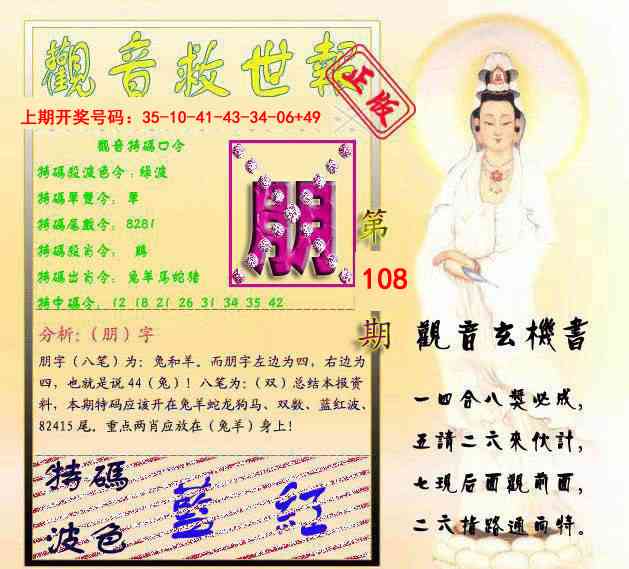 觀音救世報
正版
上期开奖号码：35-10-41-43-34-06+49
觀音特碼口令
特碼殺波色令：綠波
特碼單雙令：單
特碼尾數令：8281
特碼殺肖令：鷄
特碼出肖令：兔羊馬蛇猪
特中碼令：12 18 21 26 31 34 35 42
朋
第
108
期
分析:（朋）字
朋字（八笔）为：兔和羊。而朋字左边为四，右边为
四，也就是说44（兔）！八笔为:（双）总结本报资
料，本期特码应该开在兔羊蛇龙狗马、双数、蓝红波、
82415尾。重点两肖应放在（兔羊）身上！
特碼
波色
藍 紅
觀音玄機書
一四合八獎必成，
五請二六來伙計，
七現后面觀前面，
二六指路通両特。